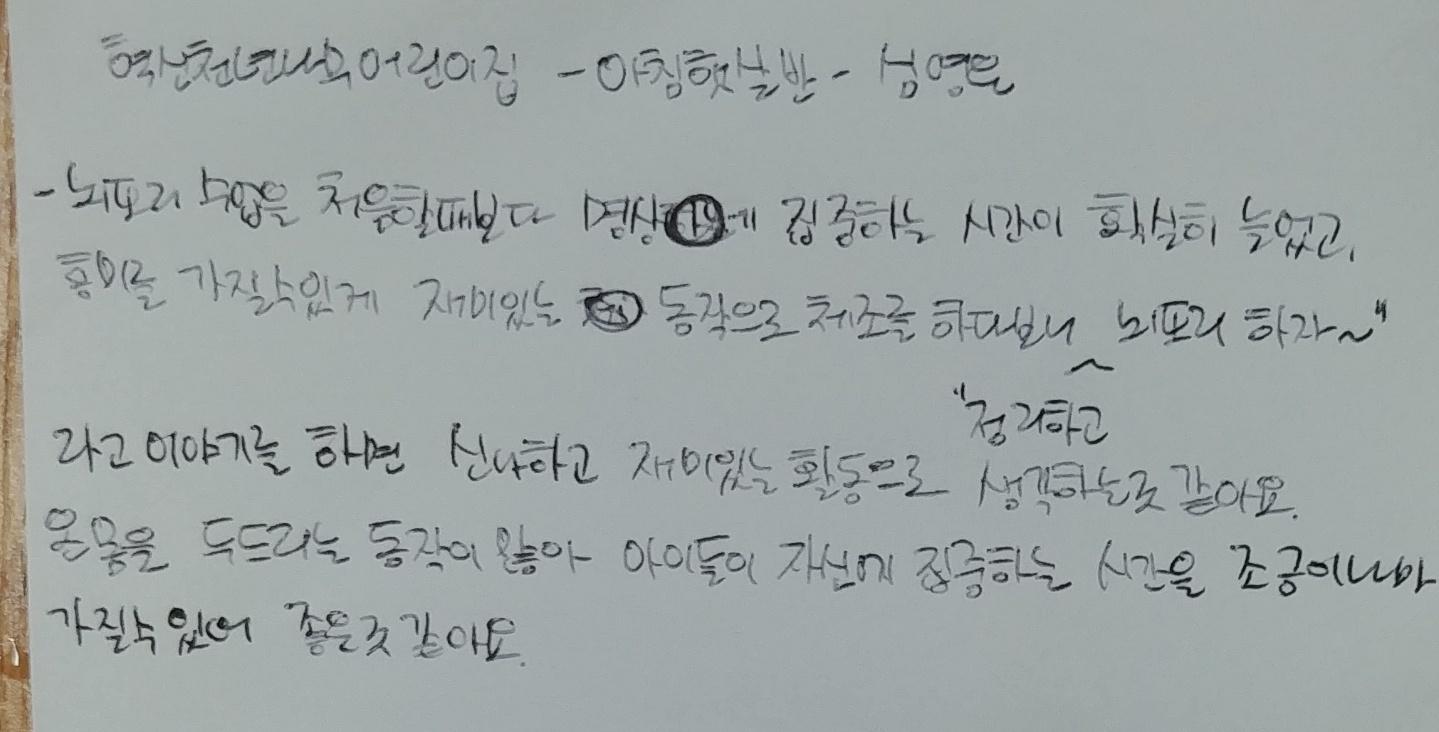 학산천년나무어린이집 - 아침햇살반 - 심영은
- 뇌포리 수업을 처음할때보다 명상에 집중하는 시간이 확실히 늘었고,
흥미를 가질수있게 재미있는 동작으로 체조를 하다보니 "정리하고 뇌포리 하자~"
라고 이야기를 하면 신나하고 재미있는 활동으로 생각하는것 같아요.
온몸을 두드리는 동작이 많아 아이들이 자신에 집중하는 시간을 조금이나마
가질수 있어 좋은것 같아요.